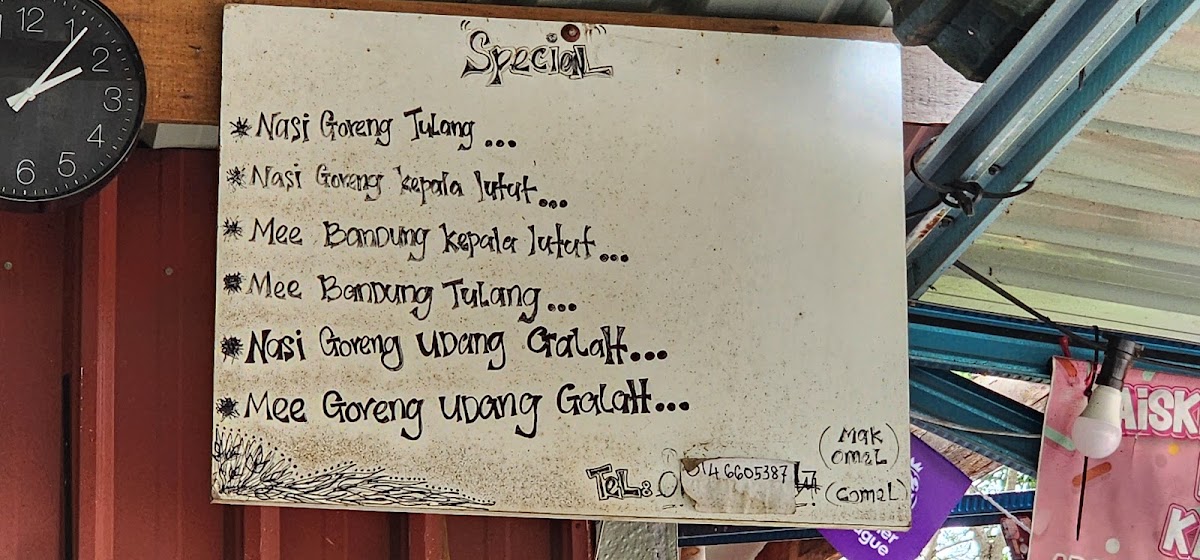 12
1
2
3
4
5
6
Special
Nasi Goreng Tulang...
Nasi Goreng kepala lutut...
Mee Bandung kepala lutut...
Mee Bandung Tulang...
Nasi Goreng udang Galah...
Mee Goreng udang Galah...
(Mak omel)
Tel: 0146605387
(Gomel)
AiSK
K